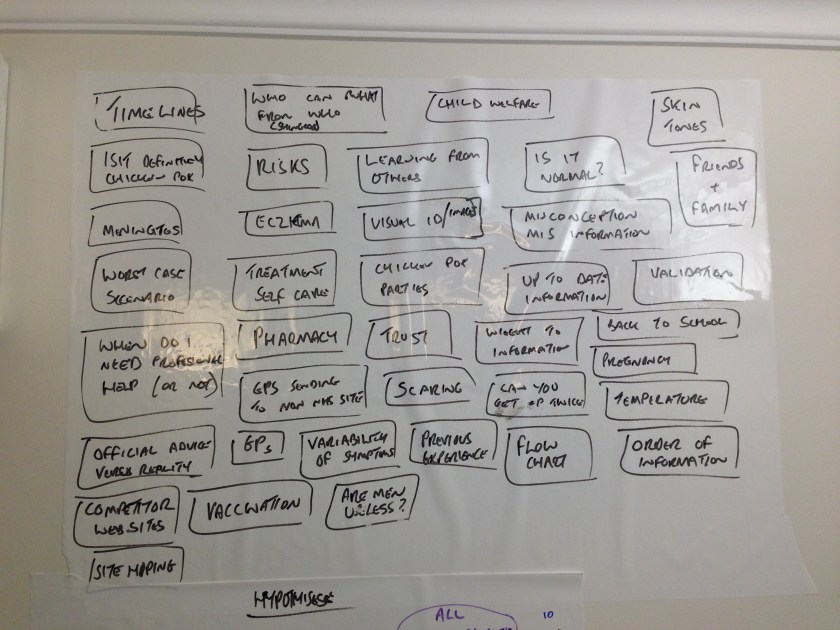 TIMELINES
WHO CAN
FROM WHO
CHILD WELFARE
SKIN
TONES
IS IT DEFINITELY
CHICKEN POX
RISKS
LEARNING FROM
OTHERS
IS IT
NORMAL?
FRIENDS
+
FAMILY
MENINGTOS
ECZEMA
VISUAL ID/IMAGES
MISCONCEPTION
MIS INFORMATION
WORST CASE
SCENARIO
TREATMENT
SELF CARE
CHICKEN POX
PARTIES
UP TO DATE
INFORMATION
VALIDATION
WHEN DO I
NEED PROFESIONAL
HELP (OR NOT)
PHARMACY
TRUST
WIDGET TO
INFORMATION
BACK TO SCHOOL
PREGNANCY
GPS SENDING
TO NON NHS SITE
SCARING
CAN YOU
GET CP TWICE
TEMPERATURE
OFFICIAL ADVICE
VERSES REALITY
GPs
VARIABILITY
OF SYMPTOMS
PREVIOUS
EXPERIENCE
FLOW
CHART
ORDER OF
INFORMATION
COMPETITOR
WEBSITES
VACCINATION
ARE MEN
USELESS?
SITE MAPPING
HYPOTHISESE
ALL
10